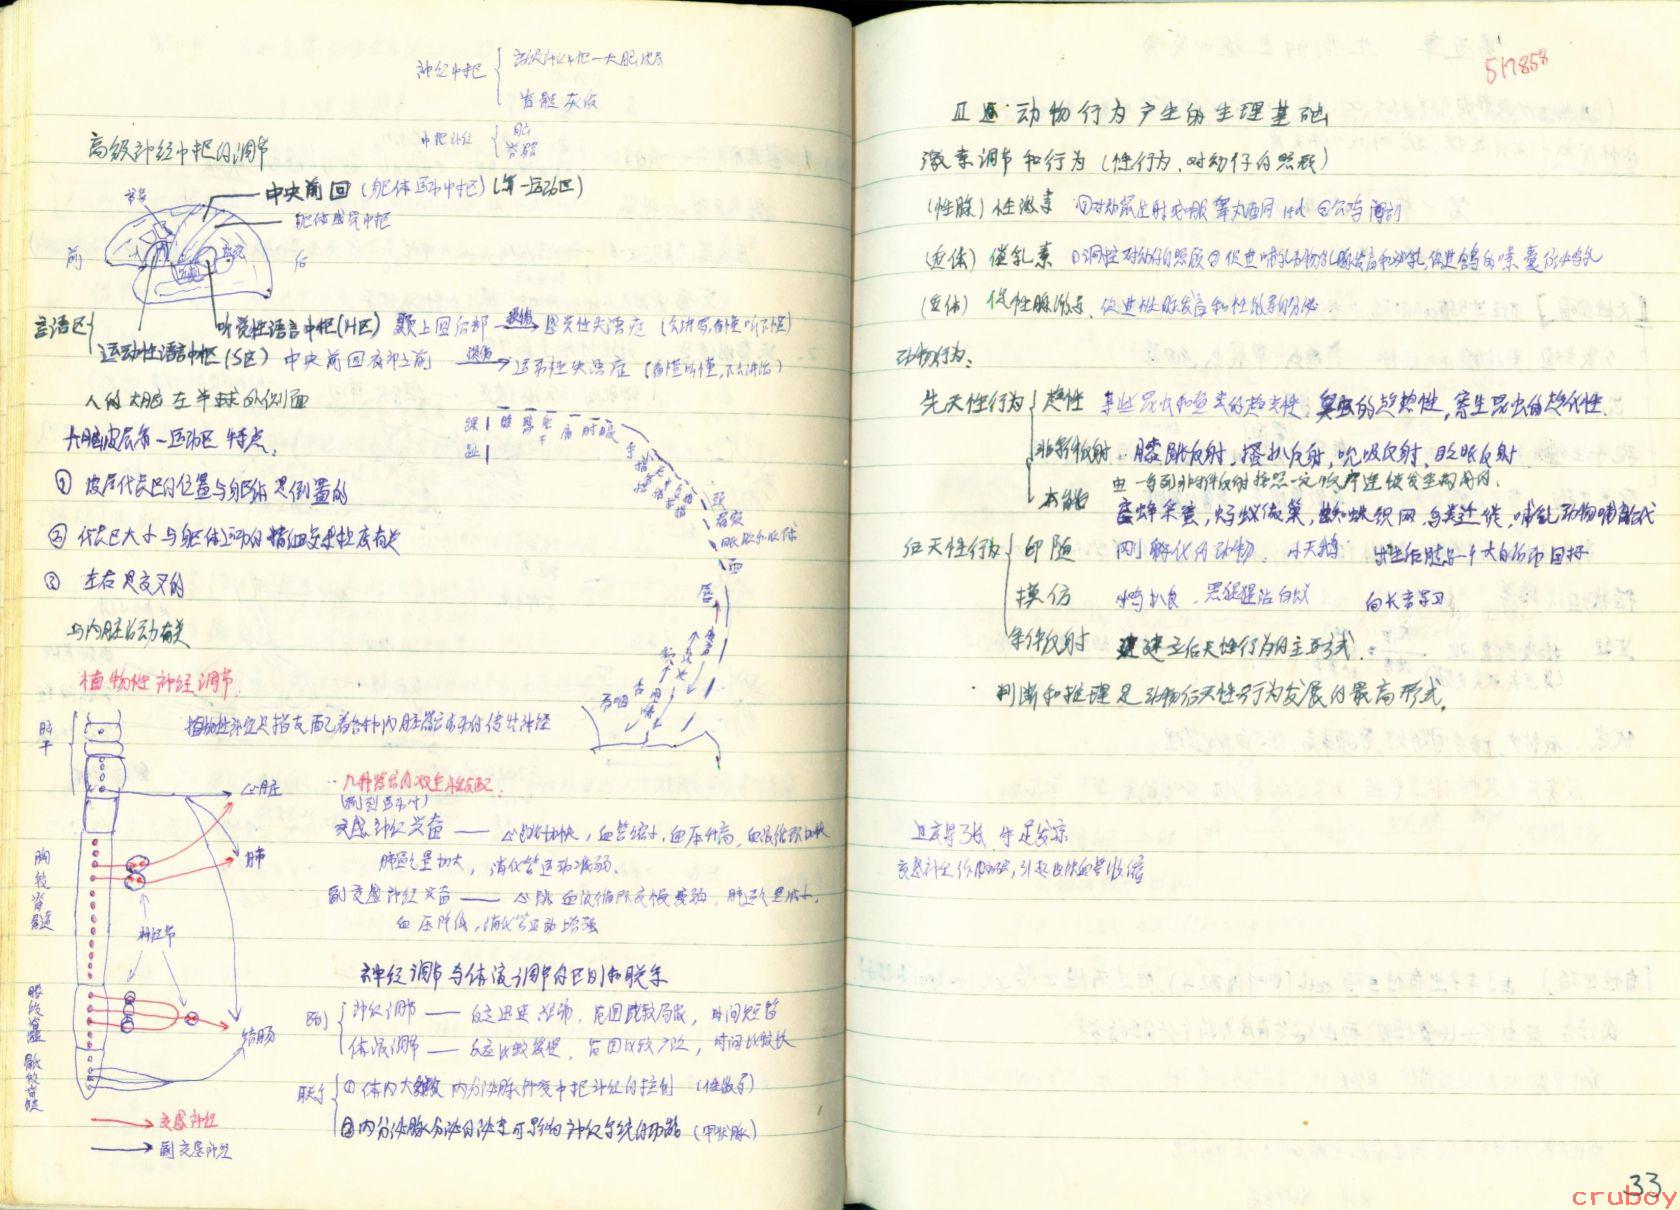 神经中枢 高级神经中枢—大脑皮层
脊髓灰质
中枢神经 脑
脊髓
高级神经中枢的调节
中央前回(躯体运动中枢)(第一运动区)
躯体感觉中枢
书写
前
后
言语区
听觉性语言中枢(H区) 颞上回后部 → 感觉性失语症
运动性语言中枢(S区) 中央前回底部之前 → 运动性失语症
人的大脑左半球外侧面
大脑皮层第一运动区特点:
① 皮层代表区的位置与躯体是倒置的
② 代表区大小与躯体运动的精细复杂程度有关
③ 左右是交叉的
与内脏活动有关
植物性神经调节
植物性神经是指支配着各种内脏器官活动的传出神经
脑干
心脏
肺
胸段脊髓
神经节
腰段脊髓
骶段脊髓
结肠
交感神经
副交感神经
趾
踝
膝
髋
干
肩
肘
腕
手
颈
眉
面
唇
舌
吞咽
几种器官的双重性支配:
交感神经兴奋 —— 心跳加快,血管缩小,血压升高,血液循环加快
肺通气量加大,消化管运动减弱.
副交感神经兴奋 —— 心跳血液循环变慢变弱,肺通气量减小,
血压降低,消化管运动增强
神经调节与体液调节的区别和联系
区别 神经调节 —— 反应迅速、准确,范围比较局限,时间短暂
体液调节 —— 反应比较缓慢,范围比较广泛,时间比较长
联系 ①体内大多数内分泌腺外受中枢神经的控制 (性激素)
②内分泌腺分泌的激素可影响神经系统的功能 (甲状腺)
517858
动物行为产生的生理基础
激素调节和行为(性行为、对幼仔的照顾)
(性腺) 性激素
(垂体) 催乳素 ①调控对幼仔的照顾②促进哺乳动物乳腺发育和泌乳,促进鸽的嗉囊分泌鸽乳
(垂体) 促性腺激素 促进性腺发育和性激素的分泌
动物行为:
先天性行为 趋性 某些昆虫和鱼类的趋光性 臭虫的趋热性,寄生昆虫的趋化性.
非条件反射 膝跳反射,搔扒反射,吮吸反射,眨眼反射
本能 由一系列非条件反射按照一定顺序连续发生构成的.
蜜蜂采蜜,蚂蚁做巢,蜘蛛织网,鸟类迁徙,哺乳动物哺育后代
后天性行为 印随 刚孵化的动物. 小天鹅
模仿 小鸡扒食,黑猩猩沾白蚁 向长者学习
条件反射 建立后天性行为的主要形式.
判断和推理是动物后天性行为发展的最高形式.
过度紧张,手足发凉
交感神经作用加强,引起皮肤血管收缩
33
cruboy